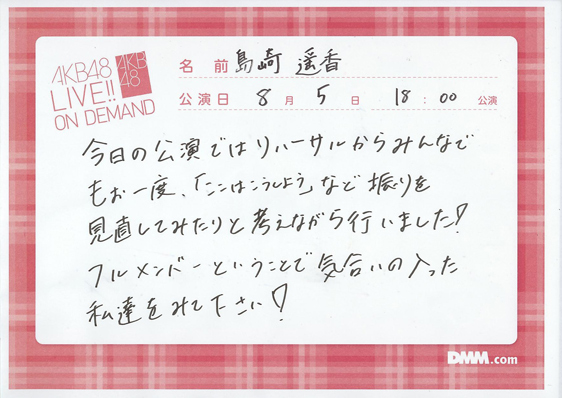 AKB48
LIVE!!
ON DEMAND
AKB
48
名前 島崎 遥香
公演日 8月 5日 18:00 公演
今日の公演ではリハーサルからみんなで
もお一度、「ここはこうしよう」など振りを
見直してみたりと考えながら行いました!
フルメンバーということで気合いの入った
私達をみて下さい!
DMM.com